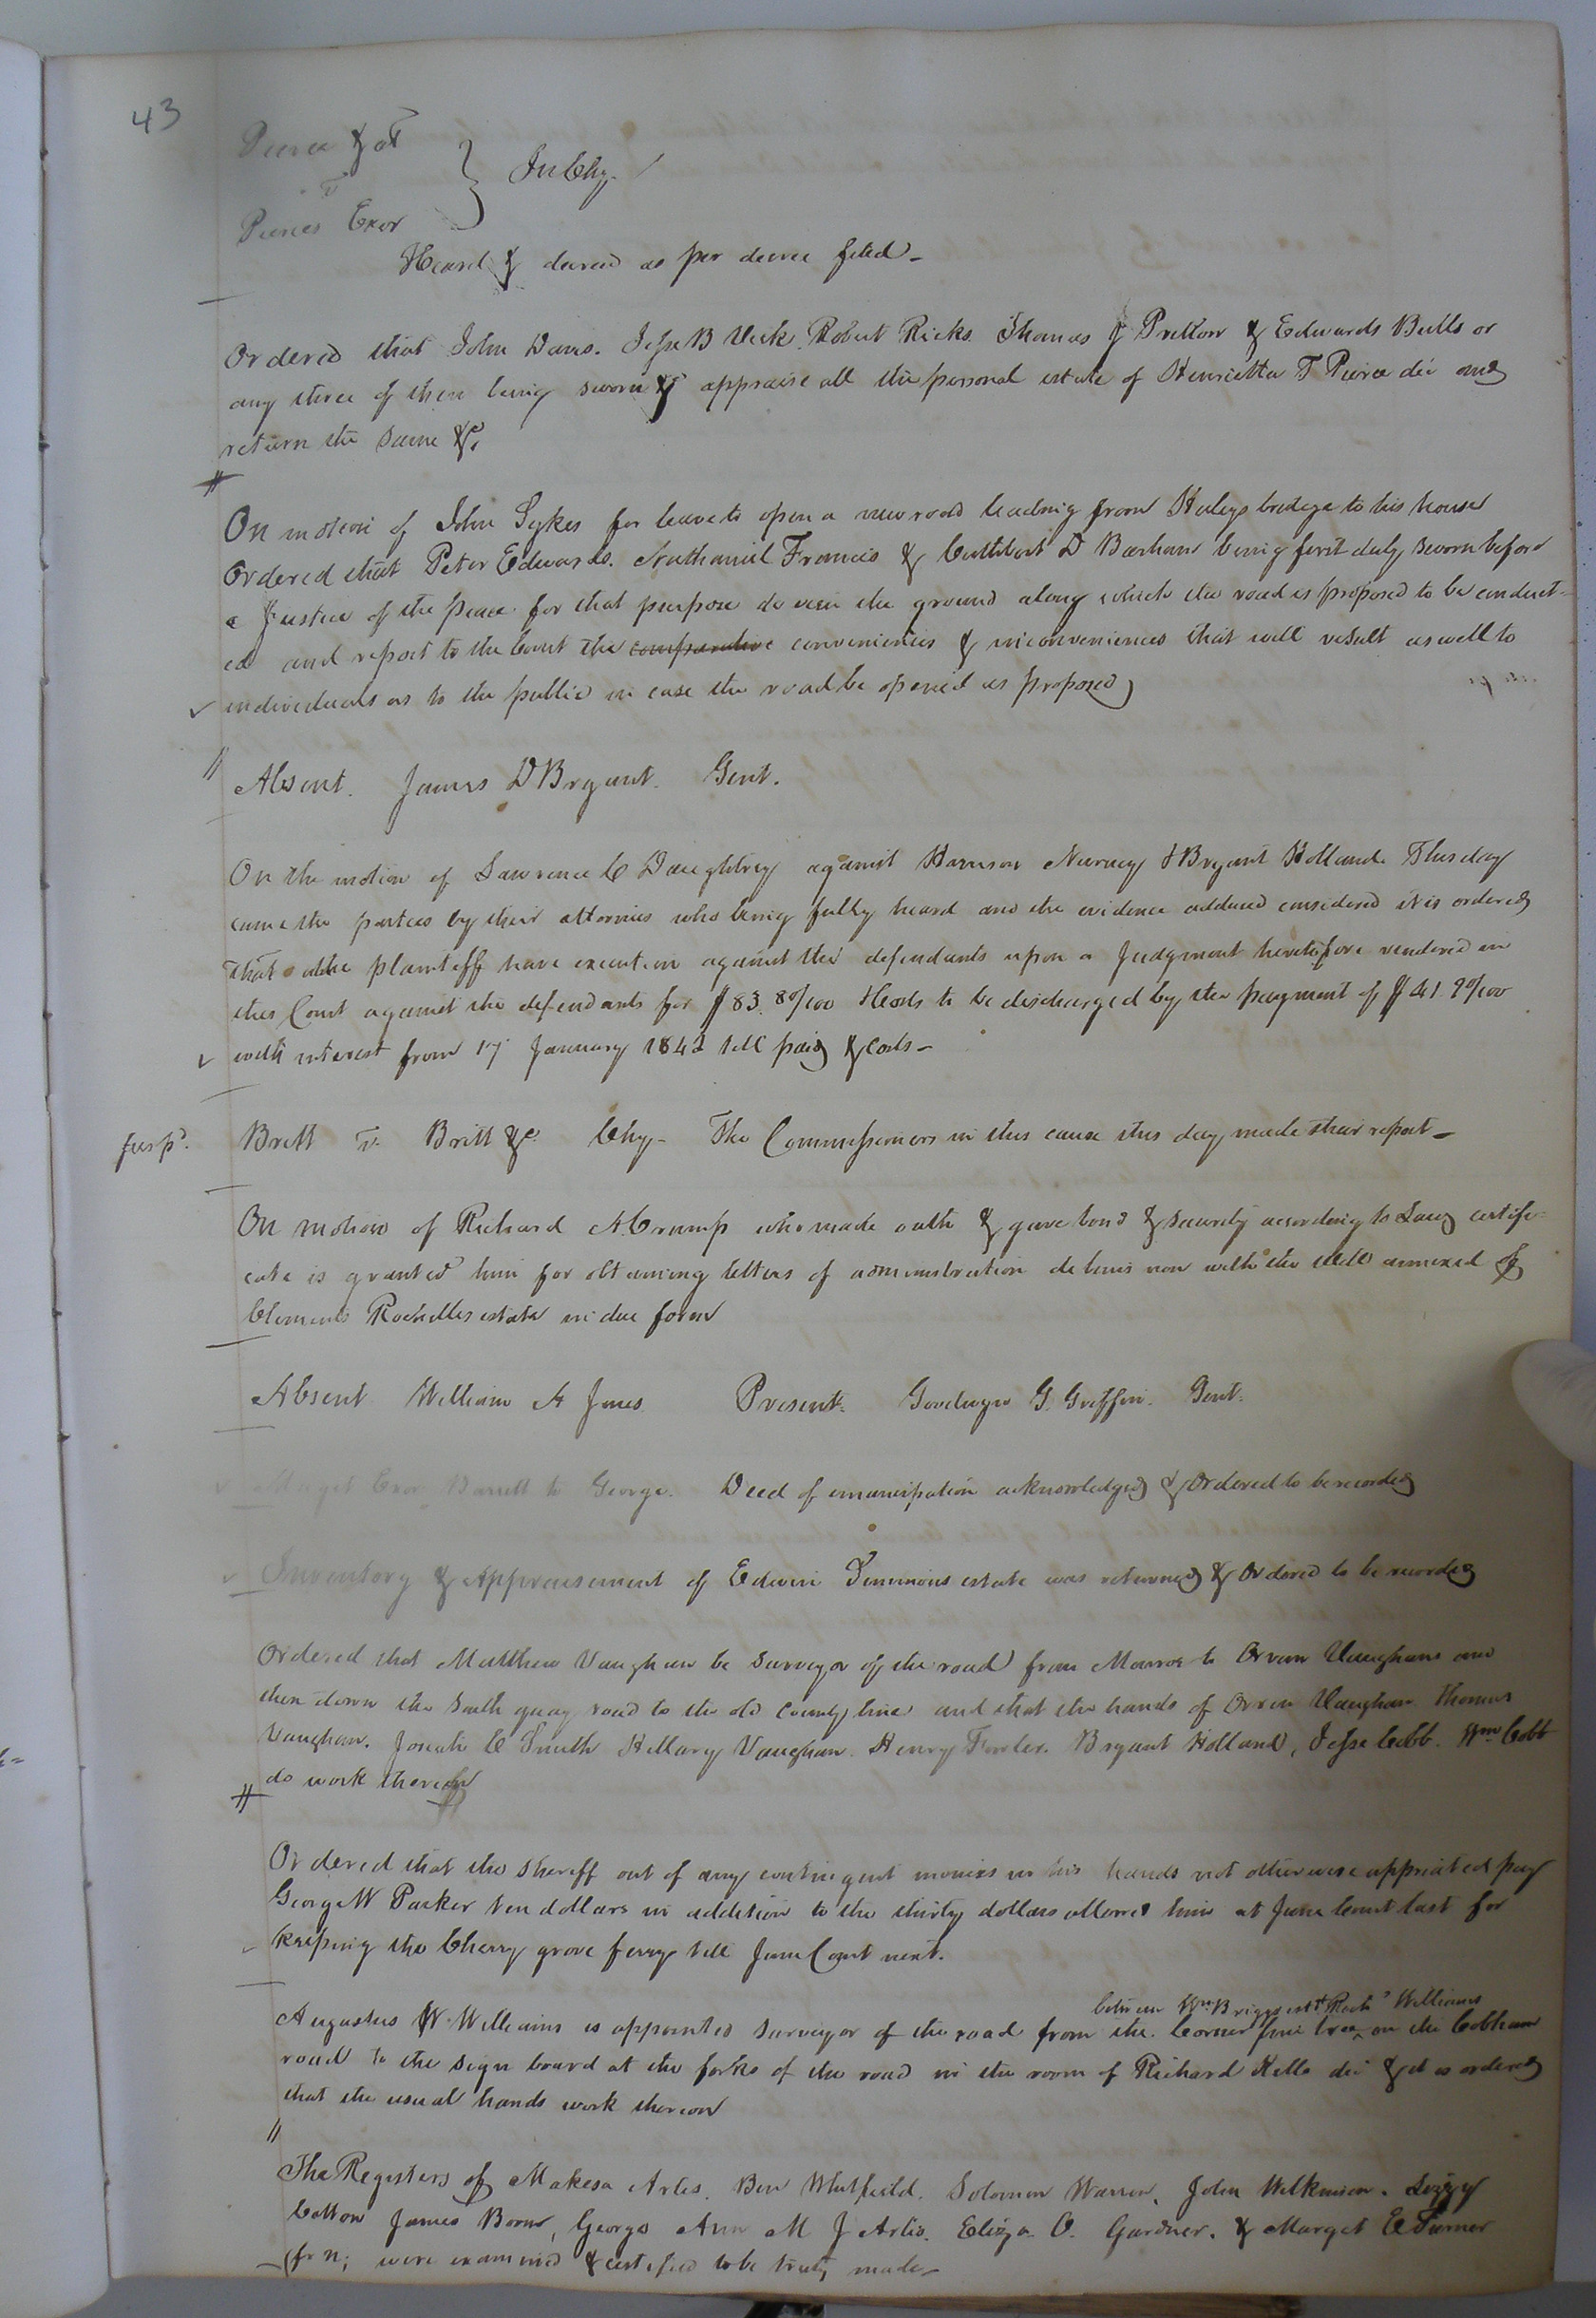 43
Pierce & ot
v
Pierces Exor } In Chy.
Heard & decreed as per decree filed -
Ordered that John Davis. Jesse B Vick. Robert Ricks. Thomas J Pretlow & Edwards Butts or
any three of them being sworn do appraise all the personal estate of Henrietta T Pierce dec and
return the same &c.
On motion of John Sykes for leave to open a new road leading from Haleys bridge to his house
Ordered that Peter Edwards. Nathaniel Francis & Cuthbert D Barham being first duly sworn before
a Justice of the peace for that purpose do view the ground along which the road is proposed to be conduct-
ed and report to the Court the comparative conveniencies & inconveniences that will result as well to
individuals as to the public in case the road be opened as proposed
Absent. James D Bryant. Gent.
On the motion of Lawrence C Daughtrey against Harrison Nurney & Bryant Holland. This day
came the parties by their attornies who being fully heard and the evidence adduced considered it is ordered
that the plaintiff have execution against the defendants upon a Judgment heretofore rendered in
this Court against the defendants for $83. 80/100 & Costs to be discharged by the payment of $41 90/100
with interest from 17 January 1842 till paid & costs -
Britt v. Britt &c. Chy - The Commissioners in this cause this day made their report -
On motion of Richard A Crump who made oath & gave bond & security according to Law certifi-
cate is granted him for obtaining letters of administration de bonis non with the will annexed of
Clements Rochelles estate in due form
Absent William A Jones Present. Goodwyn G. Griffin. Gent.
Marget Exor Barrett to George. Deed of emancipation acknowledged & Ordered to be recorded
Inventory & Appraisement of Edwin Simmons estate was returned & Ordered to be recorded
Ordered that Matthew Vaughan be Surveyor of the road from Monroe to Orren Vaughans and
then down the South quay road to the old County line and that the hands of Orren Vaughan. Thomas
Vaughan. Josiah C Smith Hillary Vaughan. Henry Fowler. Bryant Holland, Jesse Cobb. Wm Cobb
do work thereon
Ordered that the Sheriff out of any contingent monies in his hands not otherwise appriated pay
George W Parker ten dollars in addition to the thirty dollars allowed him at June Court last for
keeping the Cherry grove ferry till June Court next.
between Wm Briggs est & Rich'd Williams
Augustus W. Williams is appointed Surveyor of the road from the Corner pine tree on the Cobham
road to the sign board at the forks of the road in the room of Richard Kello dec & it is ordered
that the usual hands work thereon
The Registers of Makesa Artis. Ben Whitfield. Solomon Warren. John Wilkinson. Lizzy
Cotton James Boon, George Ann M J Artis. Eliza O. Gardner. & Marget E Turner
(fr n; were examined & certified to be truly made -